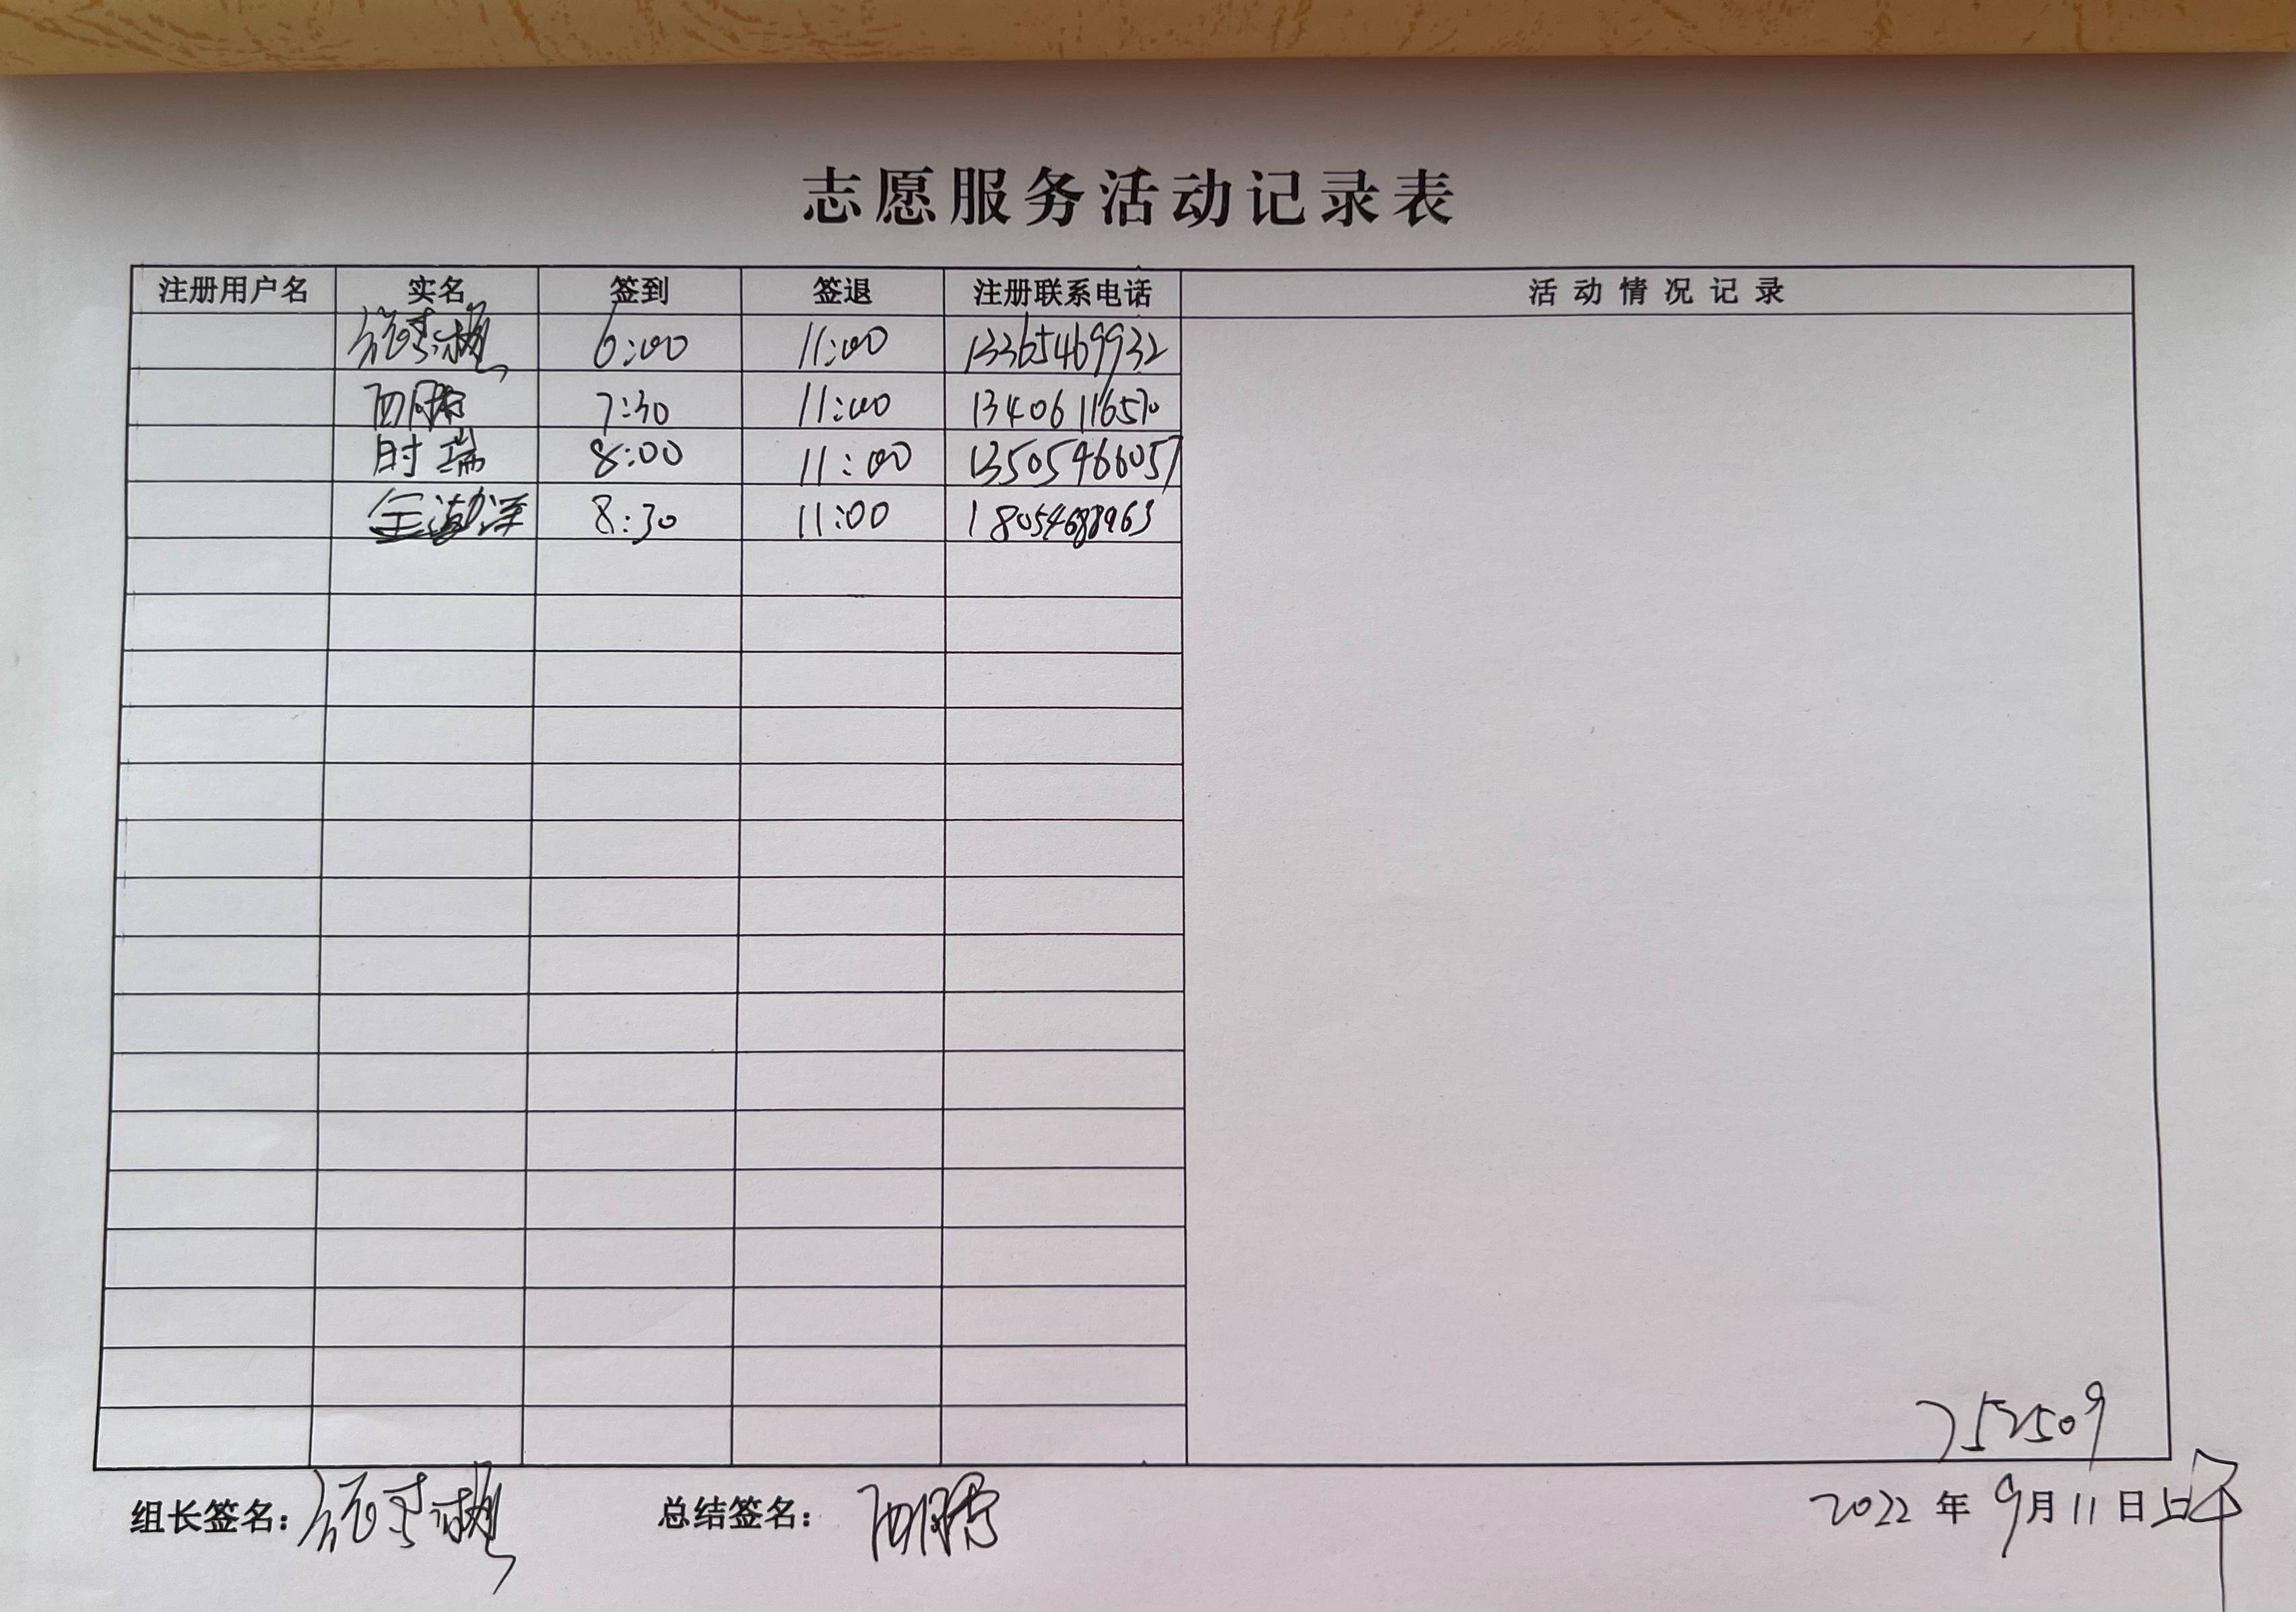 志愿服务活动记录表
注册用户名 实名 签到 签退 注册联系电话 活动情况记录
6:00 11:00 13365469932
7:30 11:00 13406116570
时瑞 8:00 11:00 13505466057
8:30 11:00 18054688963
752509
组长签名: 总结签名: 2022年9月11日上午